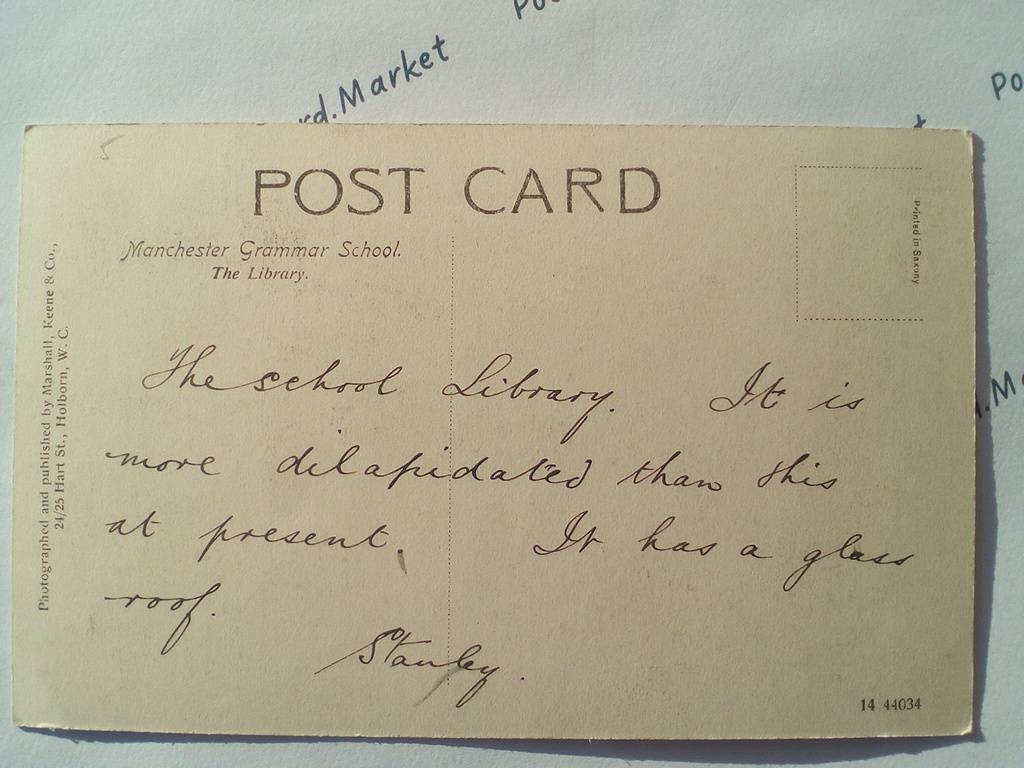 rd.Market
Po
POST CARD
Manchester Grammar School.
The Library.
Printed in Saxony
Photographed and published by Marshall, Keene & Co.,
24/25 Hart St., Holborn, W. C.
The school Library. It is
more dilapidated than this
at present. It has a glass
roof.
Stanley.
14 44034